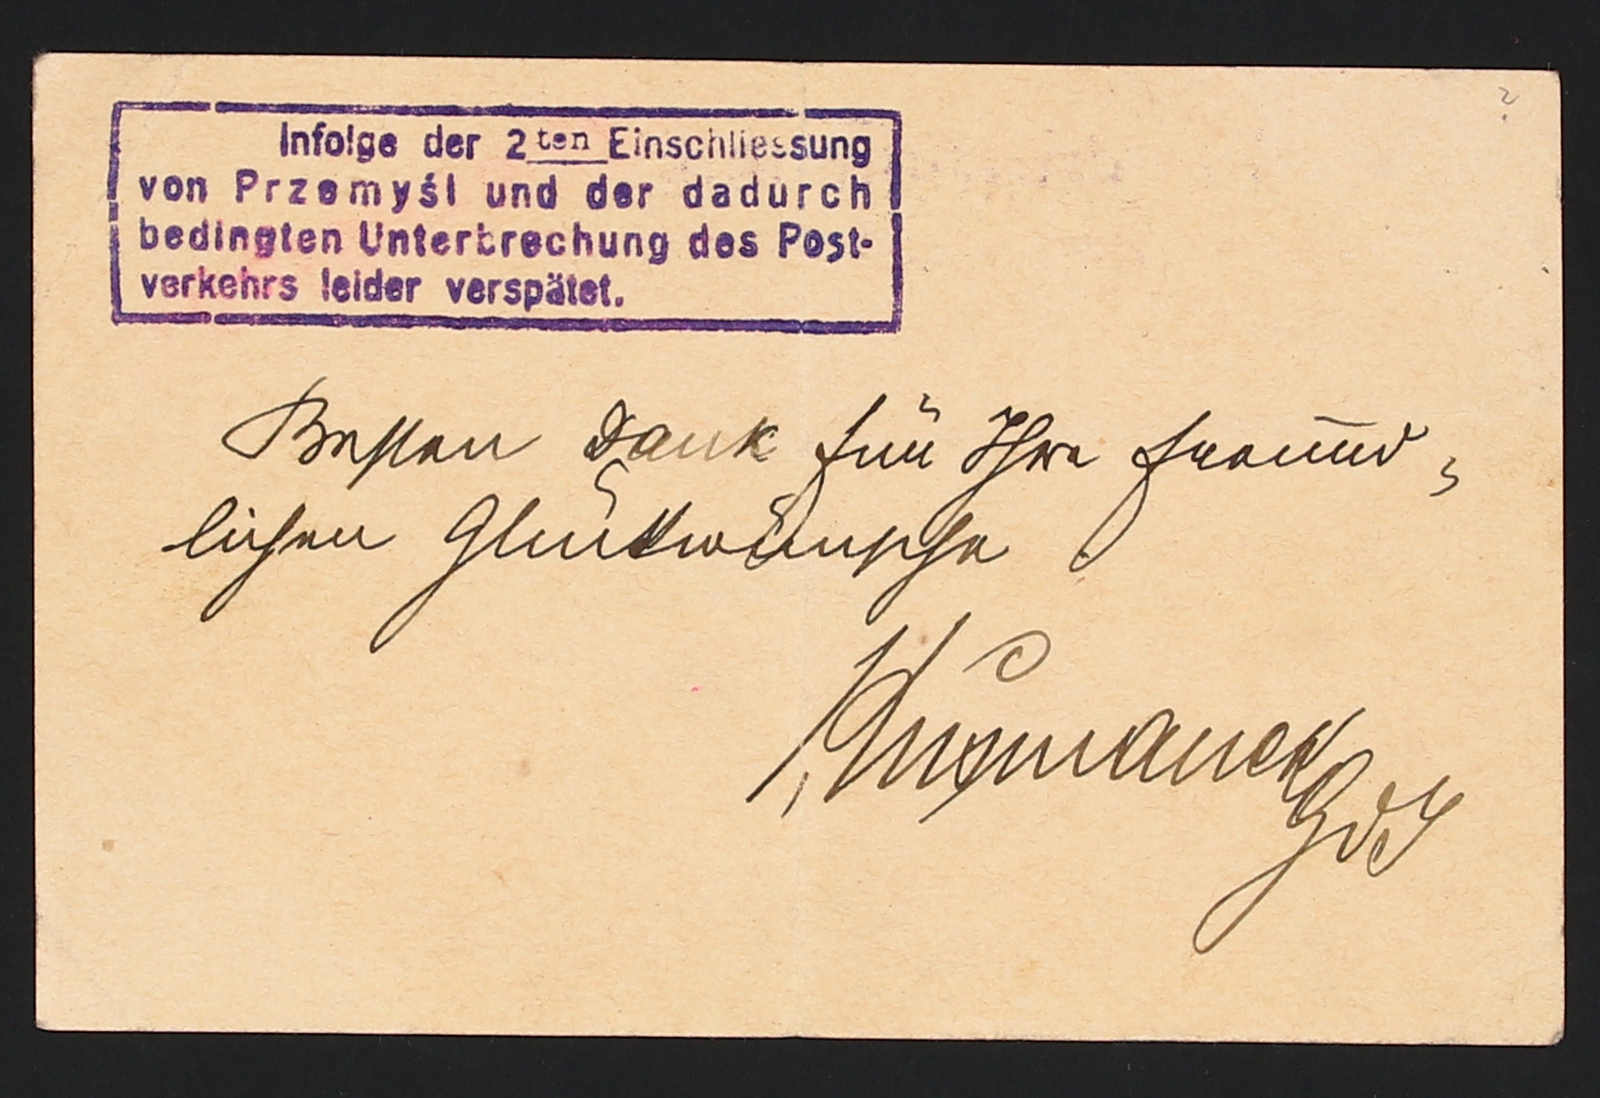 Infolge der 2ten Einschliessung
von Przemyśl und der dadurch
bedingten Unterbrechung des Post-
verkehrs leider verspätet.
Besten Dank für Ihre freund-
lichen Glückwünsche
Kusmanek
GdI
?